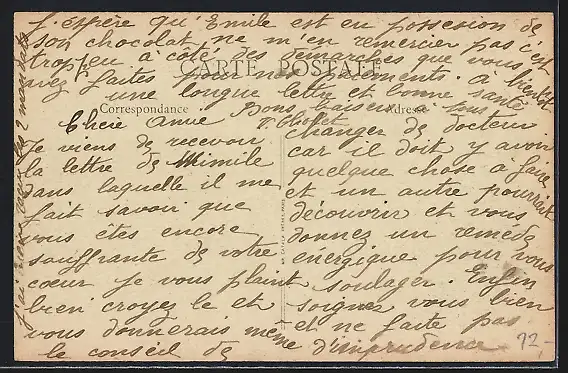 J'espère qu'Emile est en possesion de
son chocolat ne m'en remercier pas c'est
trop peu à côté des demarches que vous
avez faites pour mes payements. à bientôt
une longue lettre et bonne santé
CARTE POSTALE
Correspondance
Adresse
Bons baisers
V. Chollet
Chère Amie
Je viens de recevoir
la lettre de Mimile
dans laquelle il me
fait savoir que
vous êtes encore
souffrante de votre
cœur je vous plaint
bien croyez le et
vous donnerais même
le conseil de
changer de docteur
car il doit y avoir
quelque chose à faire
et un autre pourrait
découvrir et vous
donnez un remède
energique pour vous
soulager. Enfin
soignez vous bien
et ne faite pas
d'imprudence
92-
2 mandats